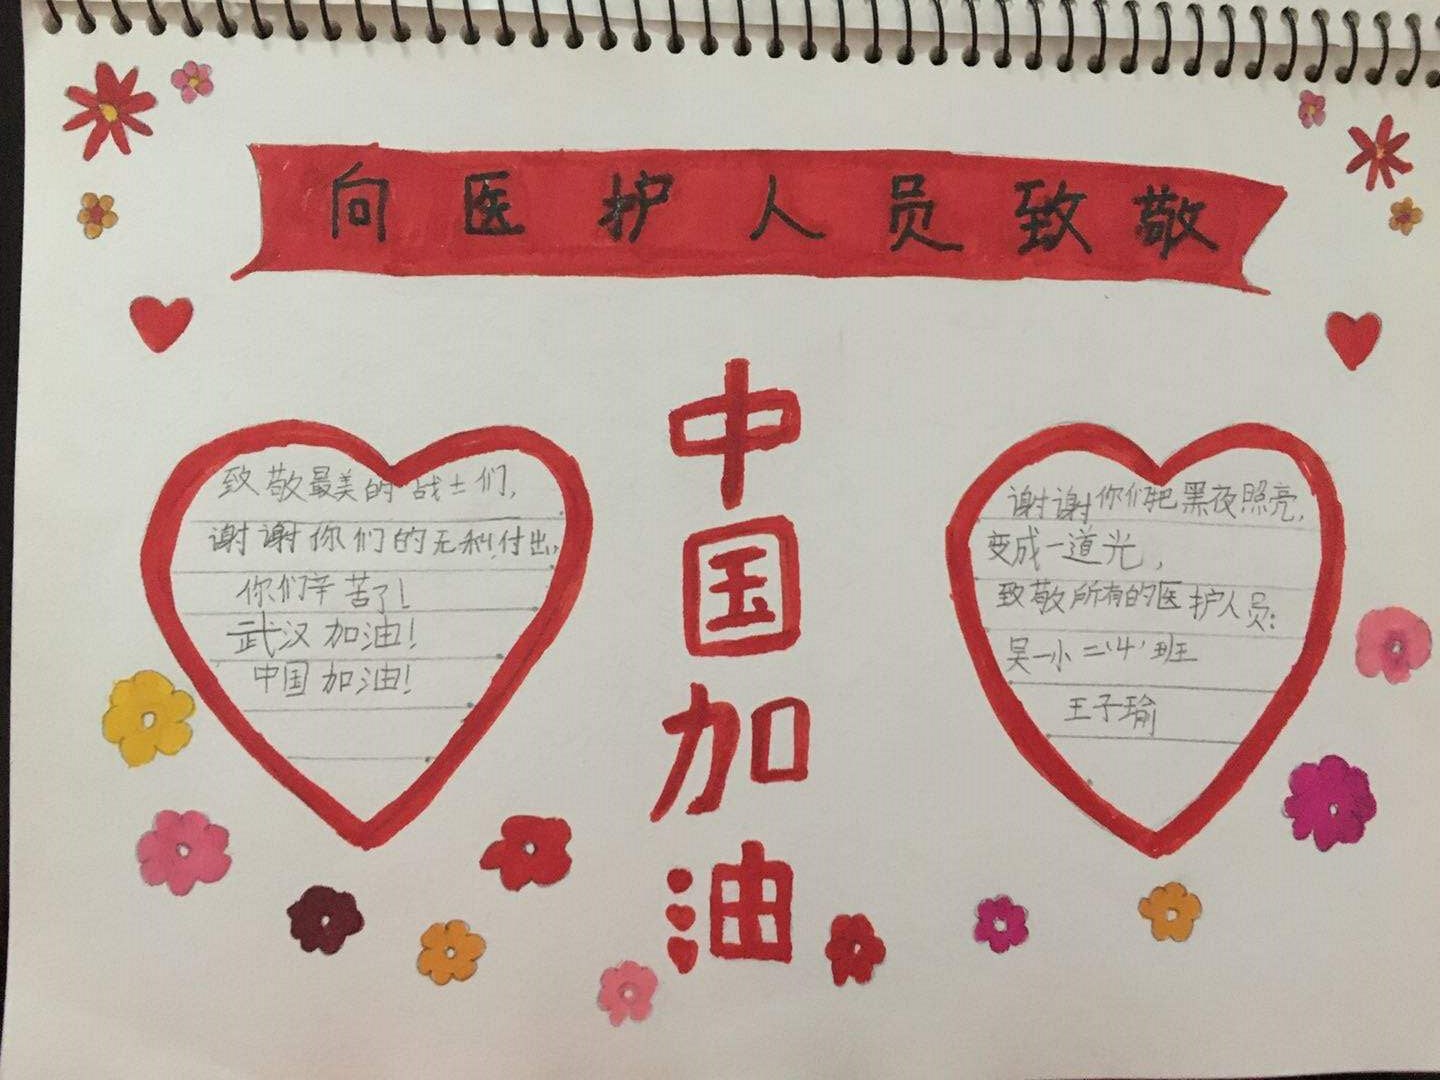 向医护人员致敬
致敬最美的战士们,
谢谢你们的无私付出,
你们辛苦了!
武汉加油!
中国加油!
中国加油
谢谢你们把黑夜照亮,
变成一道光,
致敬所有的医护人员:
吴一小二'4'班
王子瑜